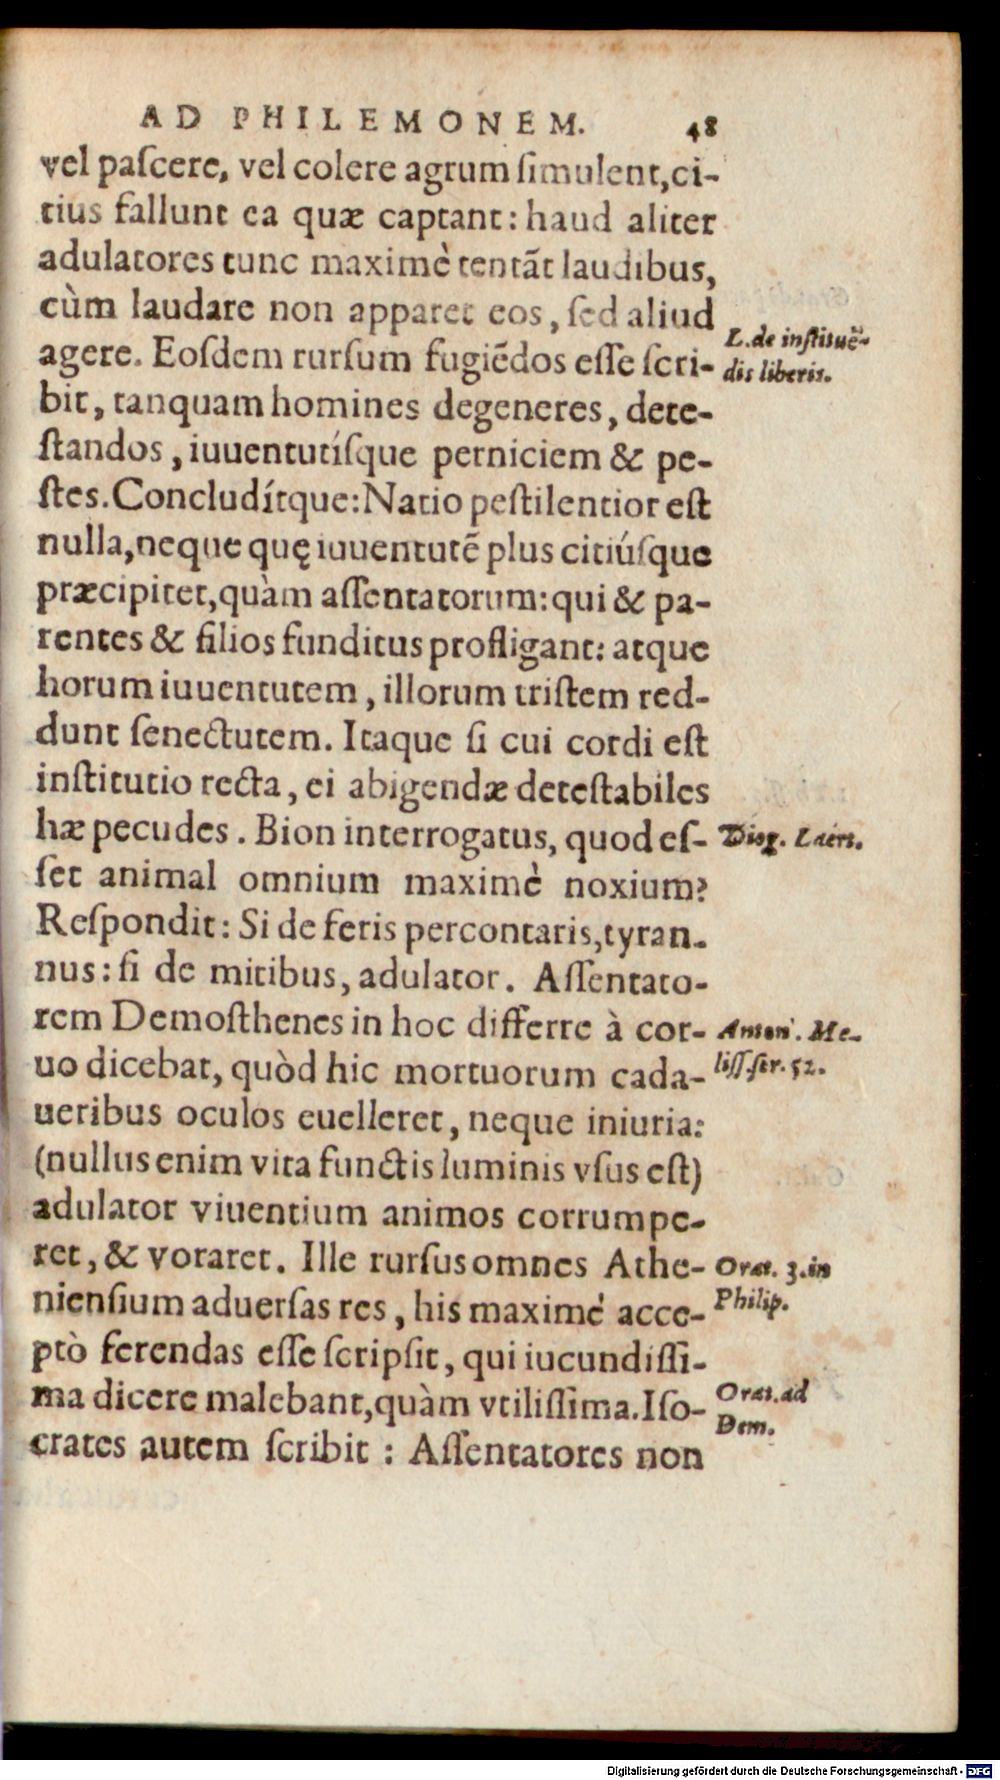 AD PHILEMONEM. 48
vel paſcere, vel colere agrum ſimulent, ci-
tius fallunt ea quæ captant: haud aliter
adulatores tunc maximè tentãt laudibus,
cùm laudare non apparet eos, ſed aliud
agere. Eoſdem rurſum fugiẽdos eſſe ſcri-
L. de inſtituẽ-
dis liberis.
bit, tanquam homines degeneres, dete-
ſtandos, iuuentutíſque perniciem & pe-
ſtes. Concludítque: Natio peſtilentior eſt
nulla, neque quę iuuentutẽ plus citiúſque
præcipitet, quàm aſſentatorum: qui & pa-
rentes & filios funditus profligant: atque
horum iuuentutem, illorum triſtem red-
dunt ſenectutem. Itaque ſi cui cordi eſt
inſtitutio recta, ei abigendæ deteſtabiles
hæ pecudes. Bion interrogatus, quod eſ-
Diog. Laërt.
ſet animal omnium maximè noxium?
Reſpondit: Si de feris percontaris, tyran-
nus: ſi de mitibus, adulator. Aſſentato-
rem Demoſthenes in hoc differre à cor-
Anton. Me-
liſſ. ſer. 52.
uo dicebat, quòd hic mortuorum cada-
ueribus oculos euelleret, neque iniuria:
(nullus enim vita functis luminis vſus eſt)
adulator viuentium animos corrumpe-
ret, & voraret. Ille rurſus omnes Athe-
Orat. 3. in
Philip.
nienſium aduerſas res, his maximè acce-
ptò ferendas eſſe ſcripſit, qui iucundiſſi-
ma dicere malebant, quàm vtiliſſima. Iſo-
Orat. ad
Dem.
crates autem ſcribit : Aſſentatores non
Digitalisierung gefördert durch die Deutsche Forschungsgemeinschaft - DFG